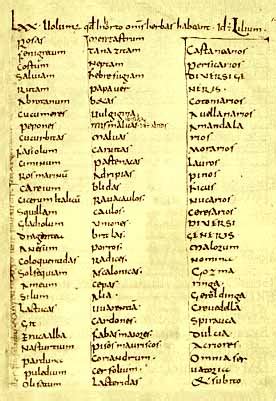 LXX. Volumus quod in horto omnes herbas habeant. Id est Lilium.
Rosas
fenigrecum
Costum
Salviam
Rutam
Abrotanum
Cucumeres
Pepones
Cucurbitas
Fasiolum
Ciminum
Rosmarinum
Careium
Cicerum italicum
Squillam
Gladiolum
Dragantea
Anesum
Coloquentidas
Solsequiam
Ameum
Silum
Lactucas
Git
Eruca alba
Nasturtium
parduna
puledium
Olisatum
Tanazitam
Neptam
febrefugiam
papaver
betas
Vulgigina
malvas
Carvitas
pastenacas
Adripias
blidas
Ravacaulos
Caulos
Uniones
britlas
porros
Radices
Ascalonicas
Cepas
Alia
Warentia
Cardones
Fabas maiores
pisos mauriscos
Coriandrum
Cerfolium
Lacteridas
Castanearios
Persicarios
DIVERSI GE
NERIS
Cotoniarios
Avellanarios
Amandala
rios
Morarios
Lauros
pinos
Ficus
Nucarios
Ceresarios
DIVERSI
GENERIS
malorum
Nomina
Gozma
ringa
Geroldinga
Crevedella
Spirauca
Dulcia
Acriores
Omnia ser
vatoria
et subito